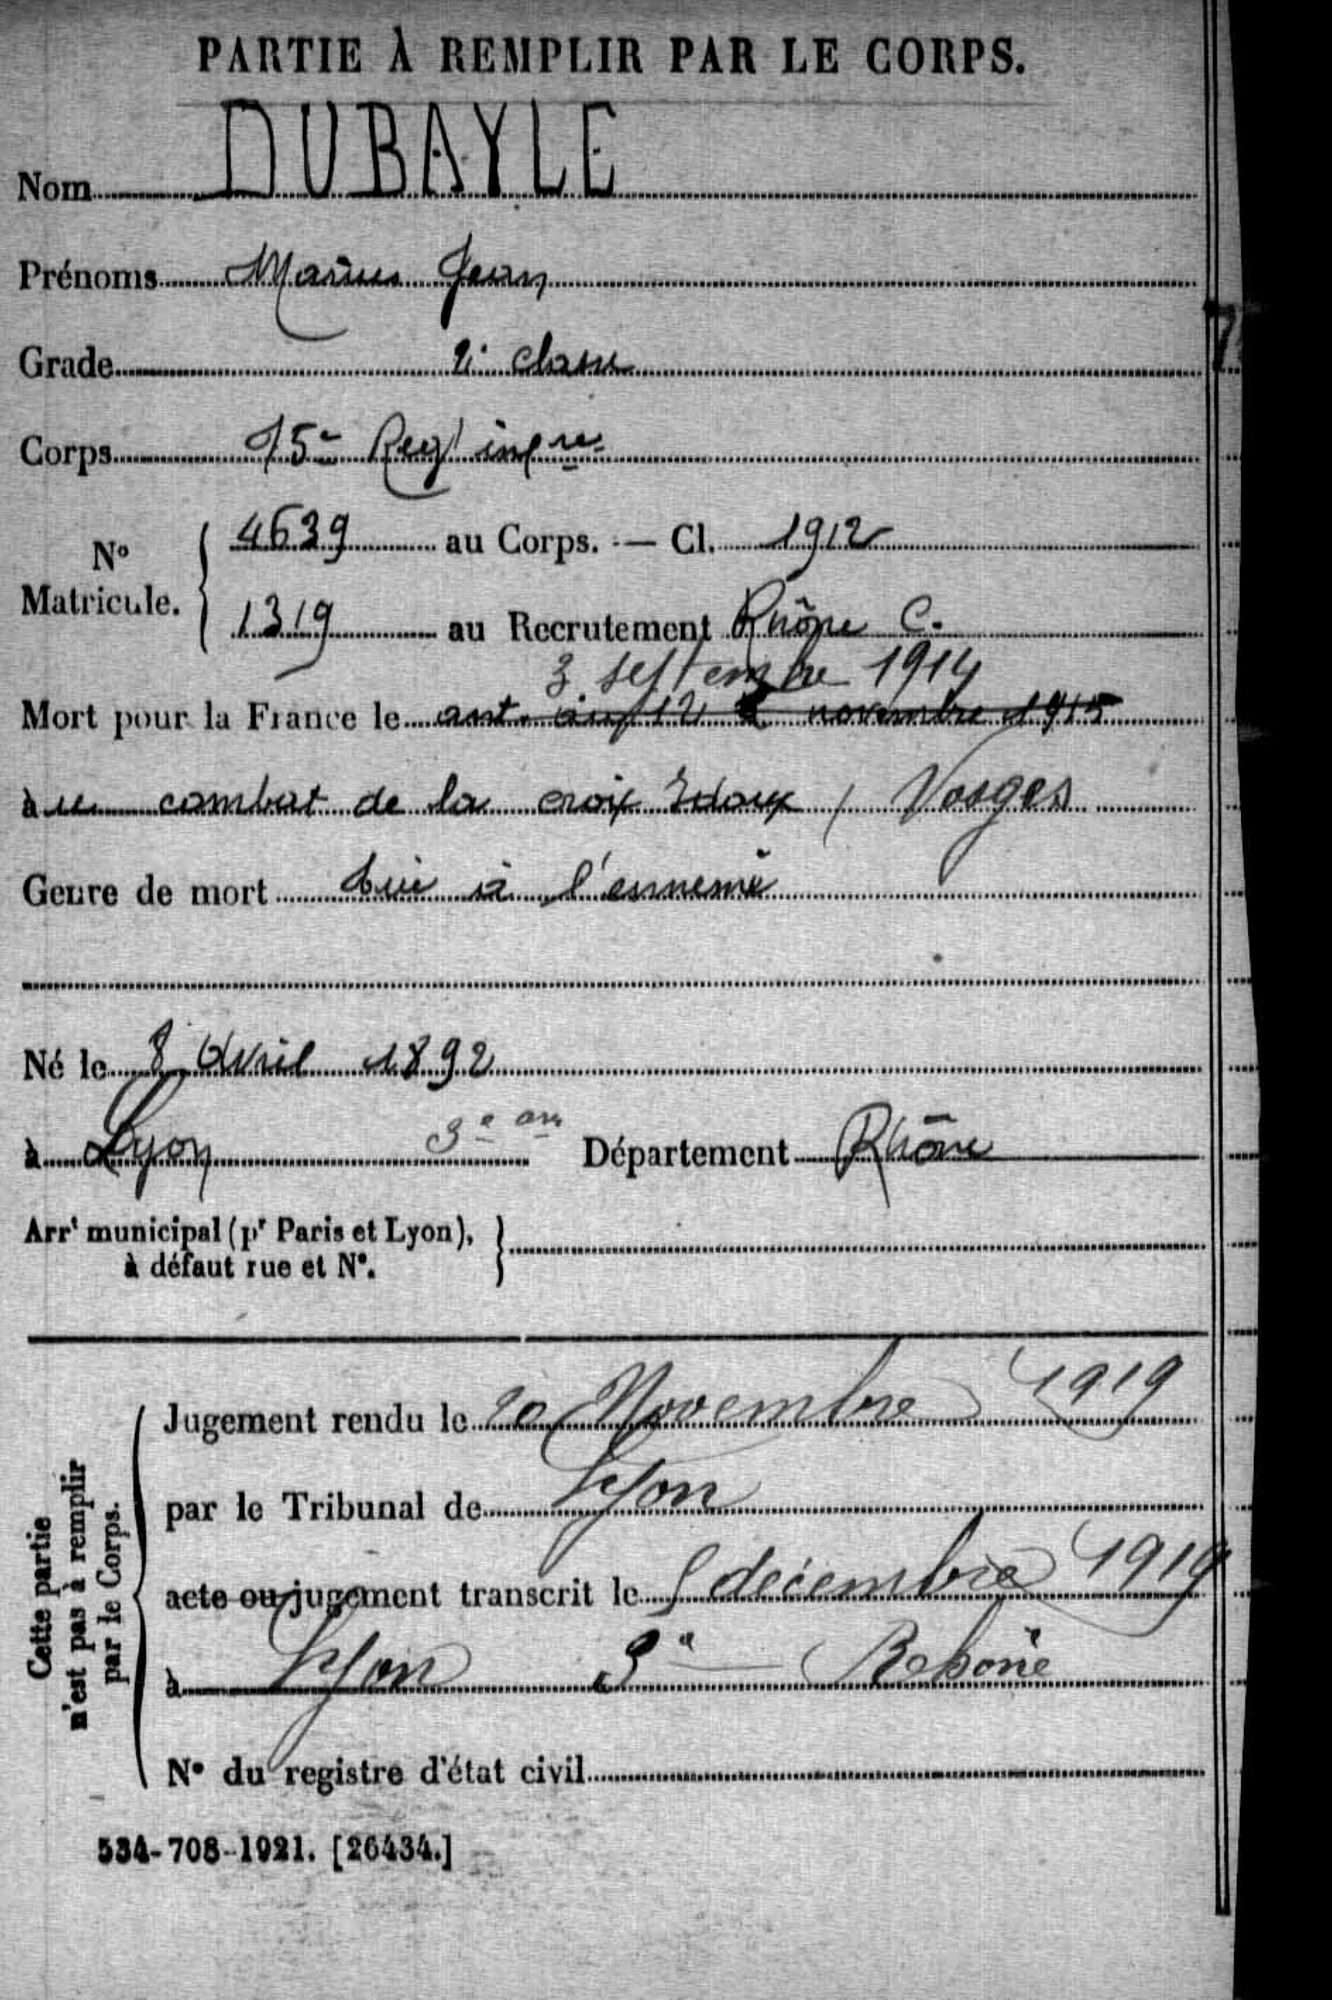 PARTIE À REMPLIR PAR LE CORPS.
Nom DUBAYLE
Prénoms Marius Jean
Grade 2e classe
Corps 75e Regt infrie
N° Matricule. { 4639 au Corps. — Cl. 1912
1319 au Recrutement Rhône C.
3 septembre 1914
Mort pour la France le ant. au 12 novembre 1915
à u combat de la croix Idoux / Vosges
Genre de mort tué à l'ennemi
Né le 8 Avril 1892
à Lyon 3e arr Département Rhône
Arrt municipal (pr Paris et Lyon), à défaut rue et N°. }
Cette partie n'est pas à remplir par le Corps.
Jugement rendu le 20 Novembre 1919
par le Tribunal de Lyon
acte ou jugement transcrit le 5 décembre 1919
à Lyon 3e Rhône
N° du registre d'état civil
534-708-1921. [26434.]